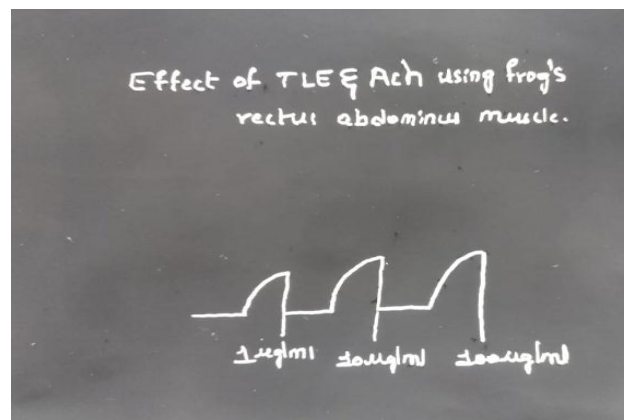 Effect of TLE & Ach using frog's
rectus abdominus muscle.
1 ug/ml 10ug/ml 100ug/ml